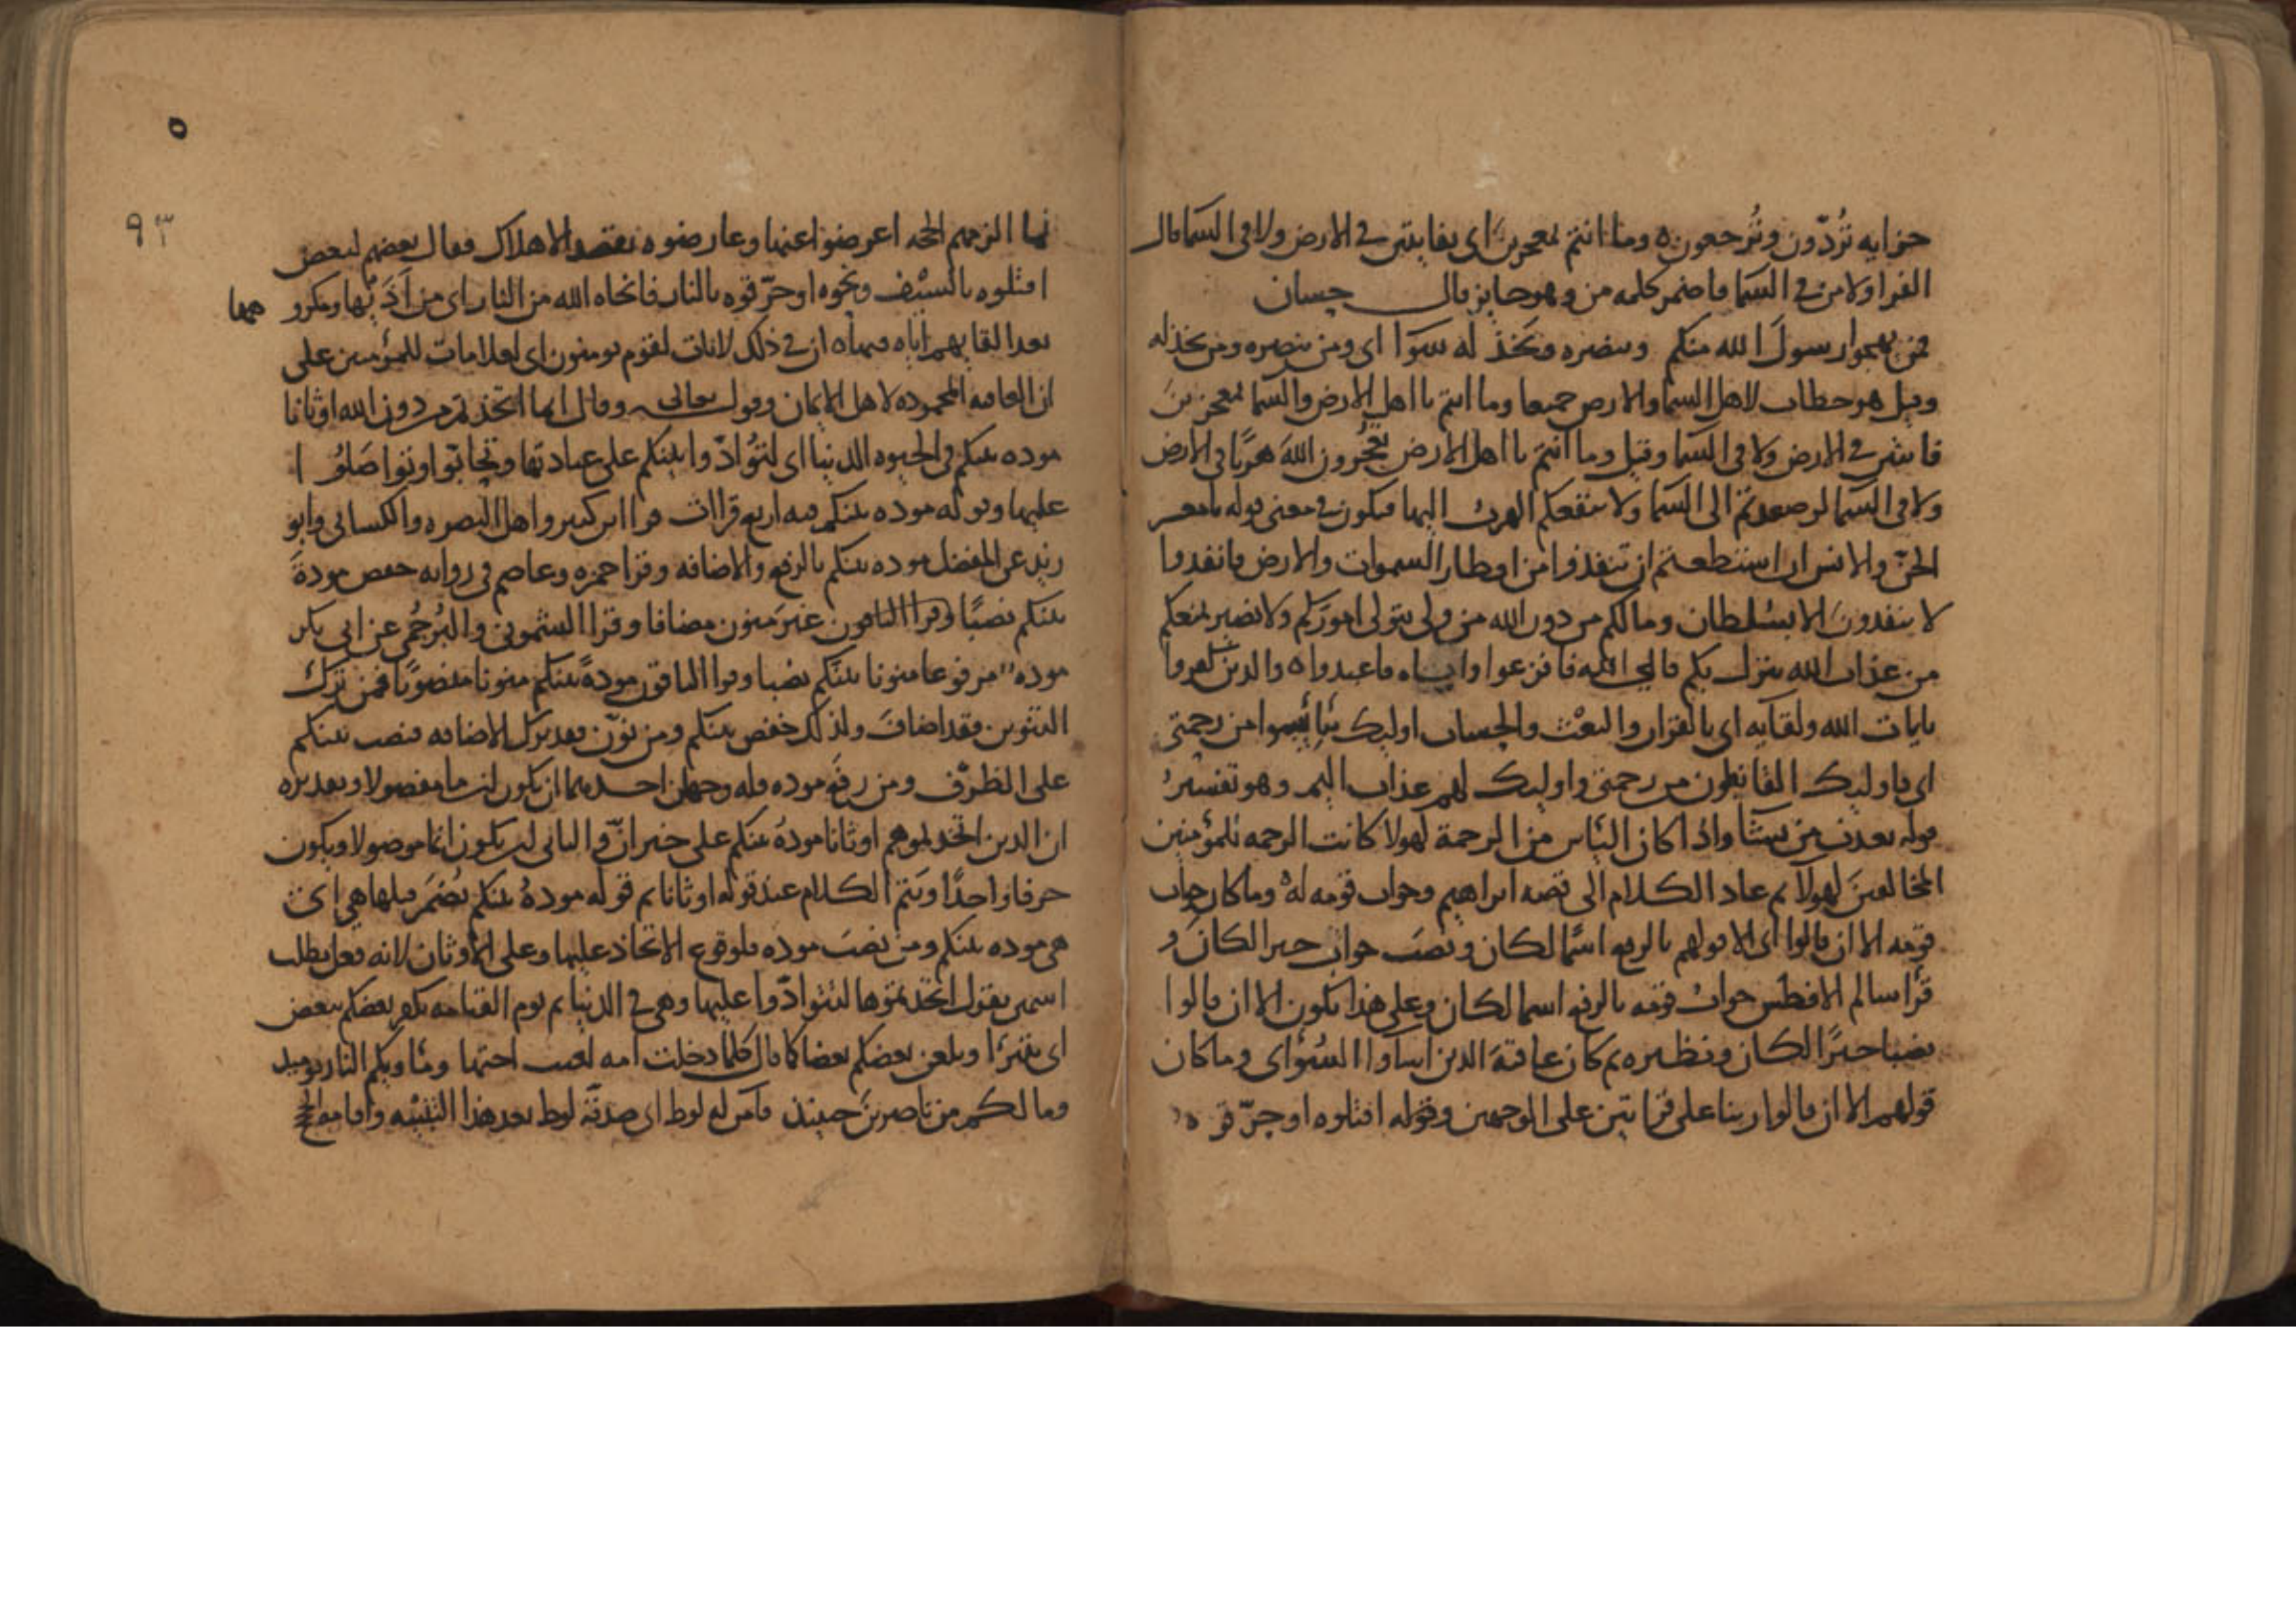 جزايه تُردّون وتُرجعون ه وما انتم بمعجزين اى بفايتين فى الارض ولا فى السما قال
الفرا ولا من فى السما فاضمر كلمه من وهو جايز قال حسان
فمن يهجوا رسولَ الله منكم وينصره ويمدحه سوا اى ومن ينصره ومن
وقيل هو خطاب لاهل السما والارض جميعا وما انتم يا اهل الارض والسما بمعجزينَ
فايتين فى الارض ولا فى السما وقيل وما انتم يا اهل الارض تعجزون اللهَ هربًا فى الارض
ولا فى السما لو صعدتم الى السما ولا ينفعكم الهرب اليها فيكون فى معنى قوله يا معشر
الجنّ والانس ان استطعتم ان تنفذوا من اقطار السموات والارض فانفذوا
لا تنفذونَ الا بسلطان وما لكم من دون الله من ولى يتولى اموركم ولا نصير يمنعكم
من عذاب الله ينزل بكم فالى الله فافزعوا واياه فاعبدوا ه والذين كفروا
بايات الله ولقايه اى بالقران والبعث والحساب اوليك يئسوا من رحمتى
اى فاوليك القانطون من رحمتى واوليك لهم عذاب اليم وهو تفسيرُ
قوله يعذب من يشا واذا كان الياس من الرحمة لهولا كانت الرحمه للمؤمنين
المخالفينَ لهولا ثم عاد الكلام الى قصه ابراهيم وجواب قومه له وما كان جواب
قومه الا ان قالوا اى الا قولهم بالرفع اسمًا لكان ونصب جواب خبرا لكان و
قرأ سالم الافطس جوابُ قومه بالرفع اسما لكان وعلى هذا يكون الا ان قالوا
نصبا خبرًا لكان ونظيره ثم كان عاقبةَ الذين اساوا السُوأى وما كان
قولهم الا ان قالوا ربنا على قرايتين على الوجهين وقوله اقتلوه او حرّقوه
لما الزمهم الحجه اعرضوا عنها وعارضوه بقصد الاهلاك فقال بعضهم لبعض
اقتلوه بالسيف ونحوه او حرّقوه بالنار فانجاه الله من النار اى من اذيتها ومكروهها
بعد القايهم اياه فيها ه ان فى ذلك لايات لقوم يومنون اى لعلامات للمؤمنين على
ان العاقبه المحموده لاهل الايمان وقوله تعالى وقال انما اتخذتم من دون الله اوثانا
موده بينكم فى الحيوه الدنيا اى لتتوادّوا بينكم على عبادتها وتحابّوا وتواصَلُوا
عليها وقوله موده بينكم فيه اربع قراات قرا ابن كثير واهل البصره والكسائى وابو
زيد عن المفضل موده بينكم بالرفع والاضافه وقرا حمزه وعاصم فى روايه حفص مودةَ
بينكم نصبًا وقرا الباقون غير منون مضافا وقرا الشمونى والبُرجُمى عن ابى بكر
موده مرفوعا منونا بينكم نصبا وقرا الباقون مودةً بينكم منونا منصوبًا فمن ترك
التنوين فقد اضافَ ولذلك خفض بينكم ومن نوّن فقد ترك الاضافه فنصب بينكم
على الظرف ومن رفع موده فله وجهان احدهما ان يكون انّ ما مفصولا وتقديره
ان الذين اتخذتموهم اوثانا مودةُ بينكم على خبر انّ والثانى ان يكون انما موصولا ويكون
حرفا واحدًا ويتم الكلام عند قوله اوثانا ثم قوله مودةُ بينكم يُضمَر قبلها هى اى
هى موده بينكم ومن نصبَ موده فلوقوع الاتخاذ عليها وعلى الاوثان لانه فعل يطلب
اسمين يقول اتخذتموها لتتوادّوا عليها وهى فى الدنيا ثم يوم القيامه يكفر بعضكم ببعض
اى يتبرأ ويلعن بعضكم بعضا كما قال كلما دخلت امه لعنت اختها وماويكم النار يوميذ
وما لكم من ناصرينَ حينئذ فآمن له لوط اى صدقّه لوط بعد هذا التنبيه واقامه الحجج
٩٣